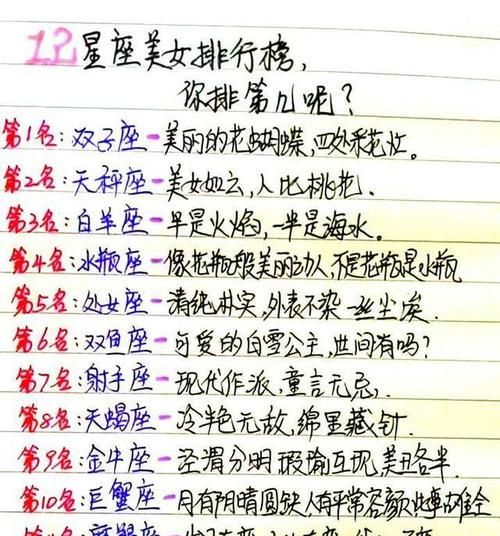 12星座美女排行榜,
你排第几呢?
第1名:双子座-美丽的花蝴蝶,四处采花忙。
第2名:天秤座-美女如云,人比桃花.
第3名:白羊座-半是火焰,一半是海水。
第4名:水瓶座-像花瓶般美丽动人,不是花瓶是水瓶
第5名:处女座-清纯朴实,外表不染一丝尘埃.
第6名:双鱼座-可爱的白雪公主,世间有吗?
第7名:射手座-现代作派,童言无忌.
第8名:天蝎座-冷艳无敌,绵里藏针.
第9名:金牛座-泾渭分明 瑕瑜互现 美丑各半.
第10名:巨蟹座-月有阴晴圆缺人有平常容颜此事古难全